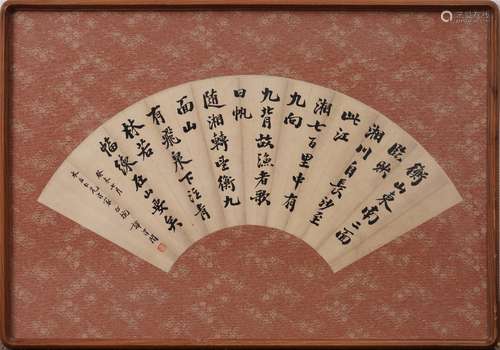 衡山東南二面
臨映
湘川自長沙至
此江
湘七百里中有
九向
九背故漁者歌
曰帆
隨湘轉望衡九
面山
有飛泉下注青
林若
幅練在山矣
癸未十月
譚澤闓